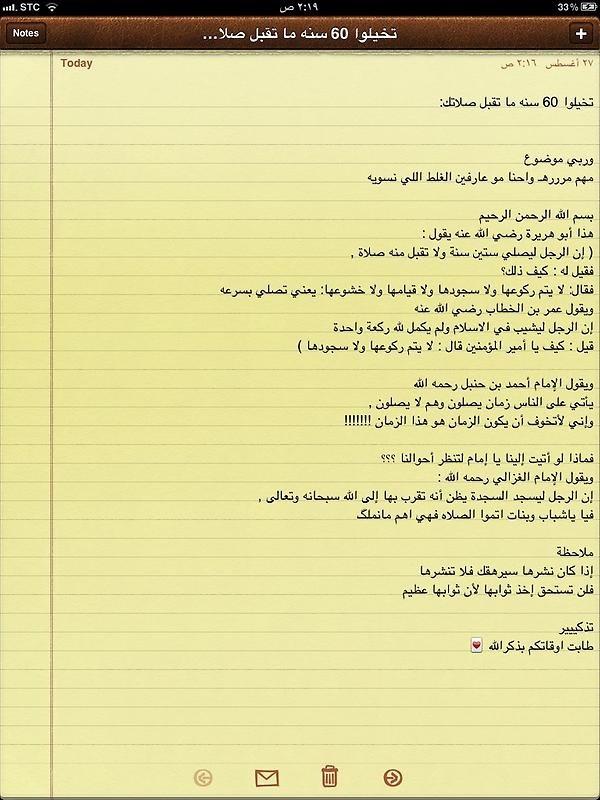 STC ٢:١٩ ص 33%
Notes تخيلوا 60 سنه ما تقبل صلا... +
Today ٢٧ أغسطس ٢:١٦ ص
تخيلوا 60 سنه ما تقبل صلاتك:
وربي موضوع
مهم مرررهـ واحنا مو عارفين الغلط اللي نسويه
بسم الله الرحمن الرحيم
هذا أبو هريرة رضي الله عنه يقول :
( إن الرجل ليصلي ستين سنة ولا تقبل منه صلاة ,
فقيل له : كيف ذلك؟
فقال: لا يتم ركوعها ولا سجودها ولا قيامها ولا خشوعها: يعني تصلي بسرعه
ويقول عمر بن الخطاب رضي الله عنه
إن الرجل ليشيب في الاسلام ولم يكمل لله ركعة واحدة
قيل : كيف يا أمير المؤمنين قال : لا يتم ركوعها ولا سجودها )
ويقول الإمام أحمد بن حنبل رحمه الله
يأتي على الناس زمان يصلون وهم لا يصلون ,
وإني لأتخوف أن يكون الزمان هو هذا الزمان !!!!!!!
فماذا لو أتيت إلينا يا إمام لتنظر أحوالنا ؟؟؟
ويقول الإمام الغزالي رحمه الله :
إن الرجل ليسجد السجدة يظن أنه تقرب بها إلى الله سبحانه وتعالى ,
فيا ياشباب وبنات اتموا الصلاه فهي اهم مانملگ
ملاحظة
إذا كان نشرها سيرهقك فلا تنشرها
فلن تستحق إخذ ثوابها لأن ثوابها عظيم
تذكيييير
طابت اوقاتكم بذكرالله